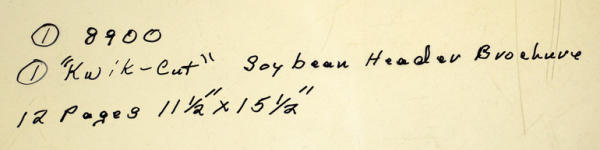 ① 8900
① "Kwik-Cut" Soybean Header Brochure
12 Pages 11½" x 15½"